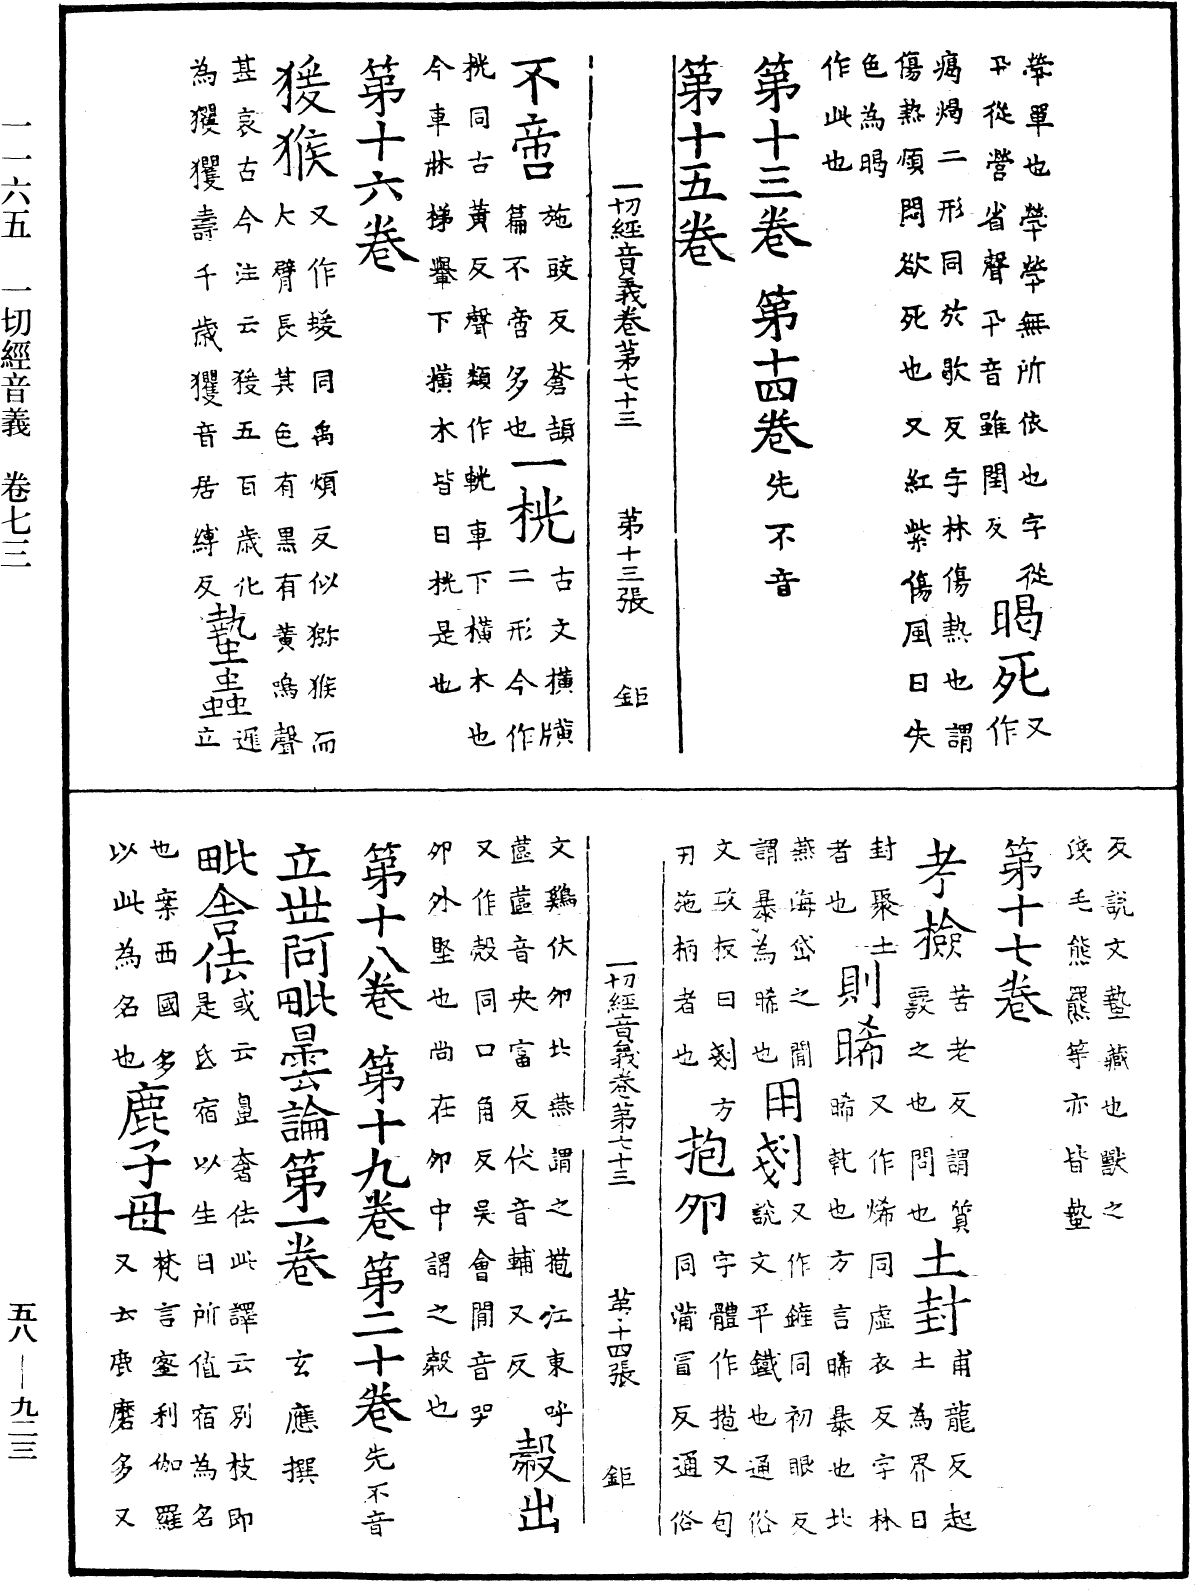 煢單也煢煢無所依也字從
卂從營省聲卂音雖閏反
暍死
又作
瘍焬二形同於歇反字林傷熱也謂
傷熱煩悶欲死也又紅紫傷風日失
色為暍
作此也
第十三卷 第十四卷 先不音
第十五卷
一切經音義卷第七十三 第十三張 鉅
不啻
施豉反蒼頡
篇不啻多也
一桄
古文橫㯡
二形今作
桄同古黃反聲類作軦車下橫木也
今車牀梯轝下橫木皆曰桄是也
第十六卷
猨猴
又作蝯同禹煩反似獼猴而
大臂長其色有黑有黃鳴聲
甚哀古今注云猨五百歲化
為玃玃壽千歲玃音居縛反
蟄蟲
遲立
反說文蟄藏也獸之
淺毛熊羆等亦皆蟄
第十七卷
考檢
苦老反謂質
覈之也問也
土封
甫龍反起
土為界曰
封聚土
者也
則晞
又作烯同虛衣反字林
晞乾也方言晞暴也北
燕海岱之閒
謂暴為晞也
用剗
又作鏟同初眼反
說文平鐵也通俗
文攻板曰剗方
刃施柄者也
抱卵
字體作菢又勹
同蒲冒反通俗
一切經音義卷第七十三 第十四張 鉅
文雞伏卵北燕謂之菢江東呼
蓲蓲音央富反伏音輔又反
㲉出
又作殼同口角反吳會閒音哭
卵外堅也尚在卵中謂之㲉也
第十八卷 第十九卷 第二十卷 先不音
立世阿毗曇論第一卷 玄應撰
毗舍佉
或云鼻奢佉此譯云別枝即
是氐宿以生日所值宿為名
也案西國多
以此為名也
鹿子母
梵言蜜利伽羅
又云鹿磨多又
一一六五 一切經音義 卷七三
五八—九二三